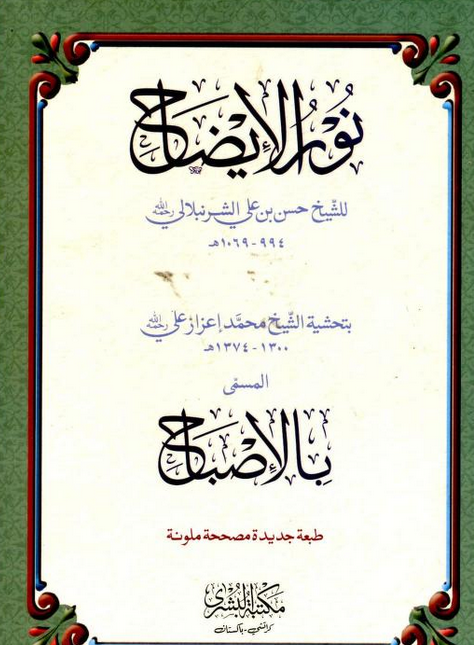 نُوْرُ الْإِيْضَاحِ
للشّيخ حسن بن علي الشرنبلالي رحمه الله
٩٩٤ - ١٠٦٩هـ
بتحشية الشّيخ محمَّد إعزاز علي رحمه الله
١٣٠٠ - ١٣٧٤هـ
المسمّى
بِالْإِصْبَاحِ
طبعة جديدة مصححة ملونة
مكتبة البشرى
كراتشي - باكستان